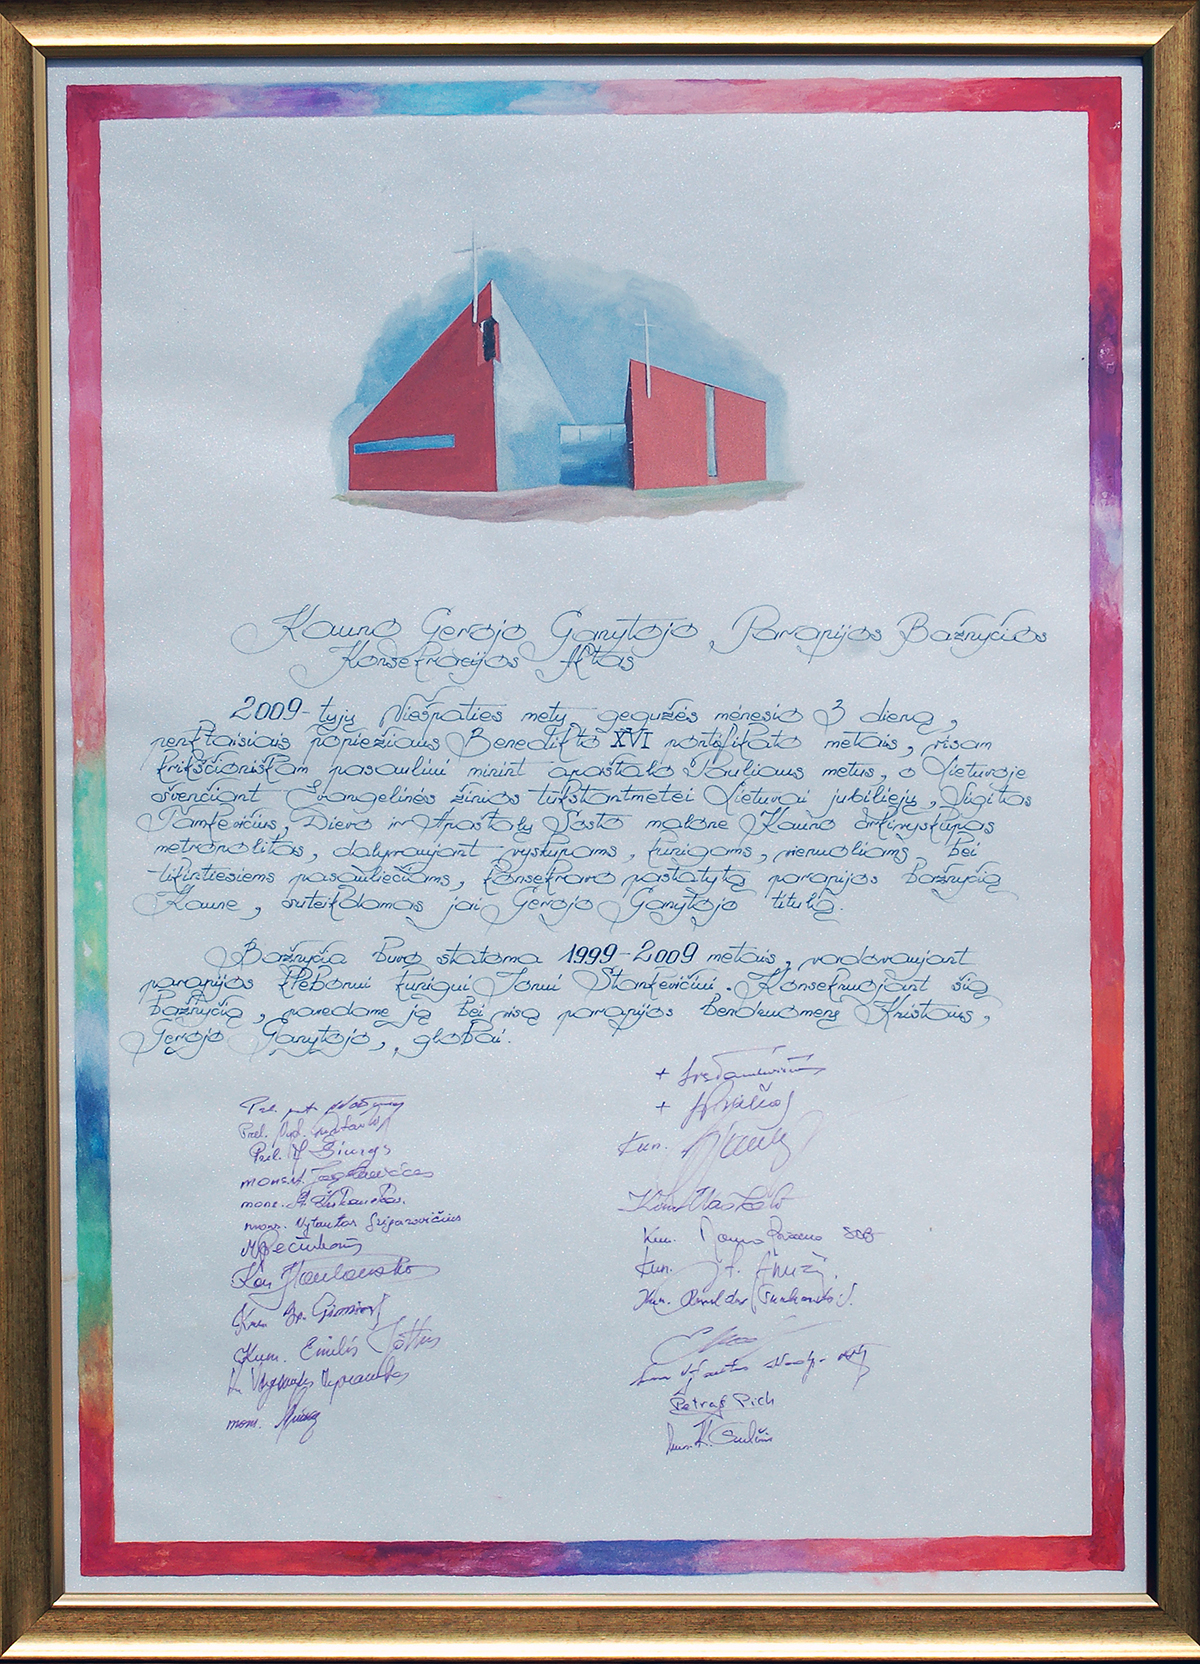 Kauno Gerojo Ganytojo Parapijos Bažnyčios
Konsekracijos Aktas
2009-tųjų Viešpaties metų gegužės mėnesio 3 dieną,
penktaisiais popiežiaus Benedikto XVI pontifikato metais, visam
krikščioniškam pasauliui minint apaštalo Pauliaus metus, o Lietuvoje
švenčiant Evangelinės žinios tūkstantmetei Lietuvai jubiliejų, Sigitas
Tamkevičius, Dievo ir Apaštalų Sosto malone Kauno arkivyskupas
metropolitas, dalyvaujant vyskupams, kunigams, vienuoliams bei
tikintiesiems pasauliečiams, konsekravo pastatytą parapijos bažnyčią
Kaune, suteikdamas jai Gerojo Ganytojo titulą.
Bažnyčia buvo statoma 1999-2009 metais, vadovaujant
parapijos klebonui kunigui Jonui Stankevičiui. Konsekruojant šią
bažnyčią, pavedame ją bei visą parapijos bendruomenę Kristaus,
Gerojo Ganytojo, globai.
+
+
Kun.
Prel.
Prel.
Prel.
mons.
mons.
mons. Vytautas Grigaravičius
Kun.
Kun.
Kun. Emilis
mons.
Kun.
Kun.
Petras Pich
kun. K.